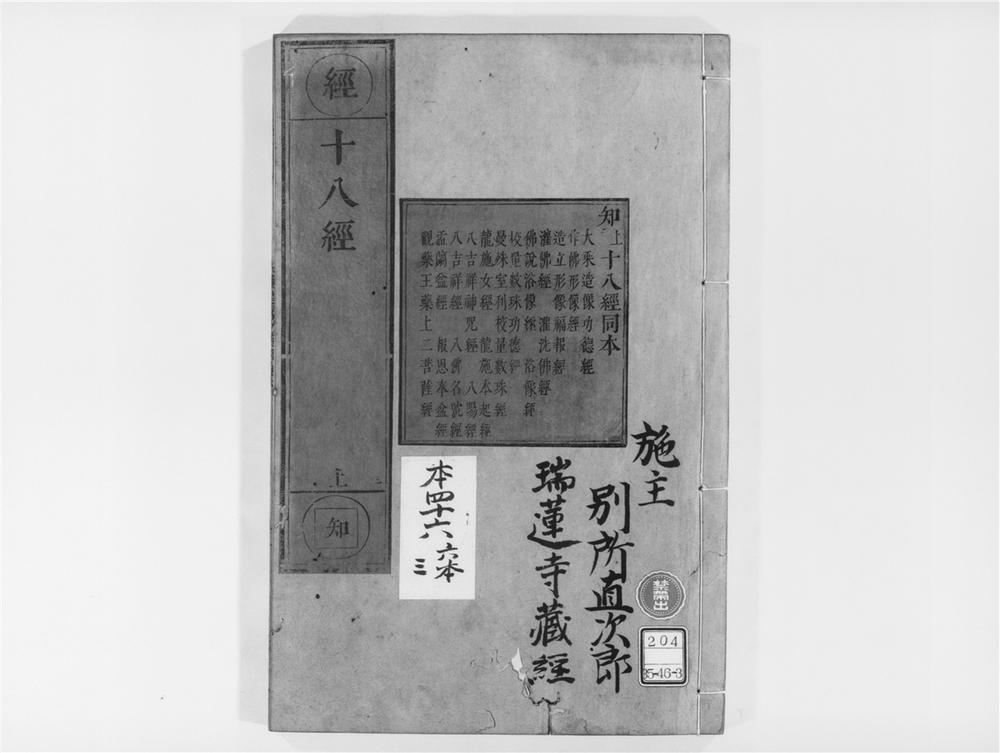 施主
別所直次郎
瑞蓮寺藏經
禁帶出
204
35-46-3
知上十八經同本
大乘造像功德經
作佛形像經
造立形像福報經
灌佛經 灌洗佛經
佛說浴像經 浴像經
校量数珠功德經
曼殊室利校量数珠經
龍施女經 龍施本起經
八吉祥神咒經 八陽經
八吉祥經 八佛名號經
盂蘭盆經 報恩奉盆經
觀藥王藥上二菩薩經
本四十六 六本
三
經
十八經
上
知